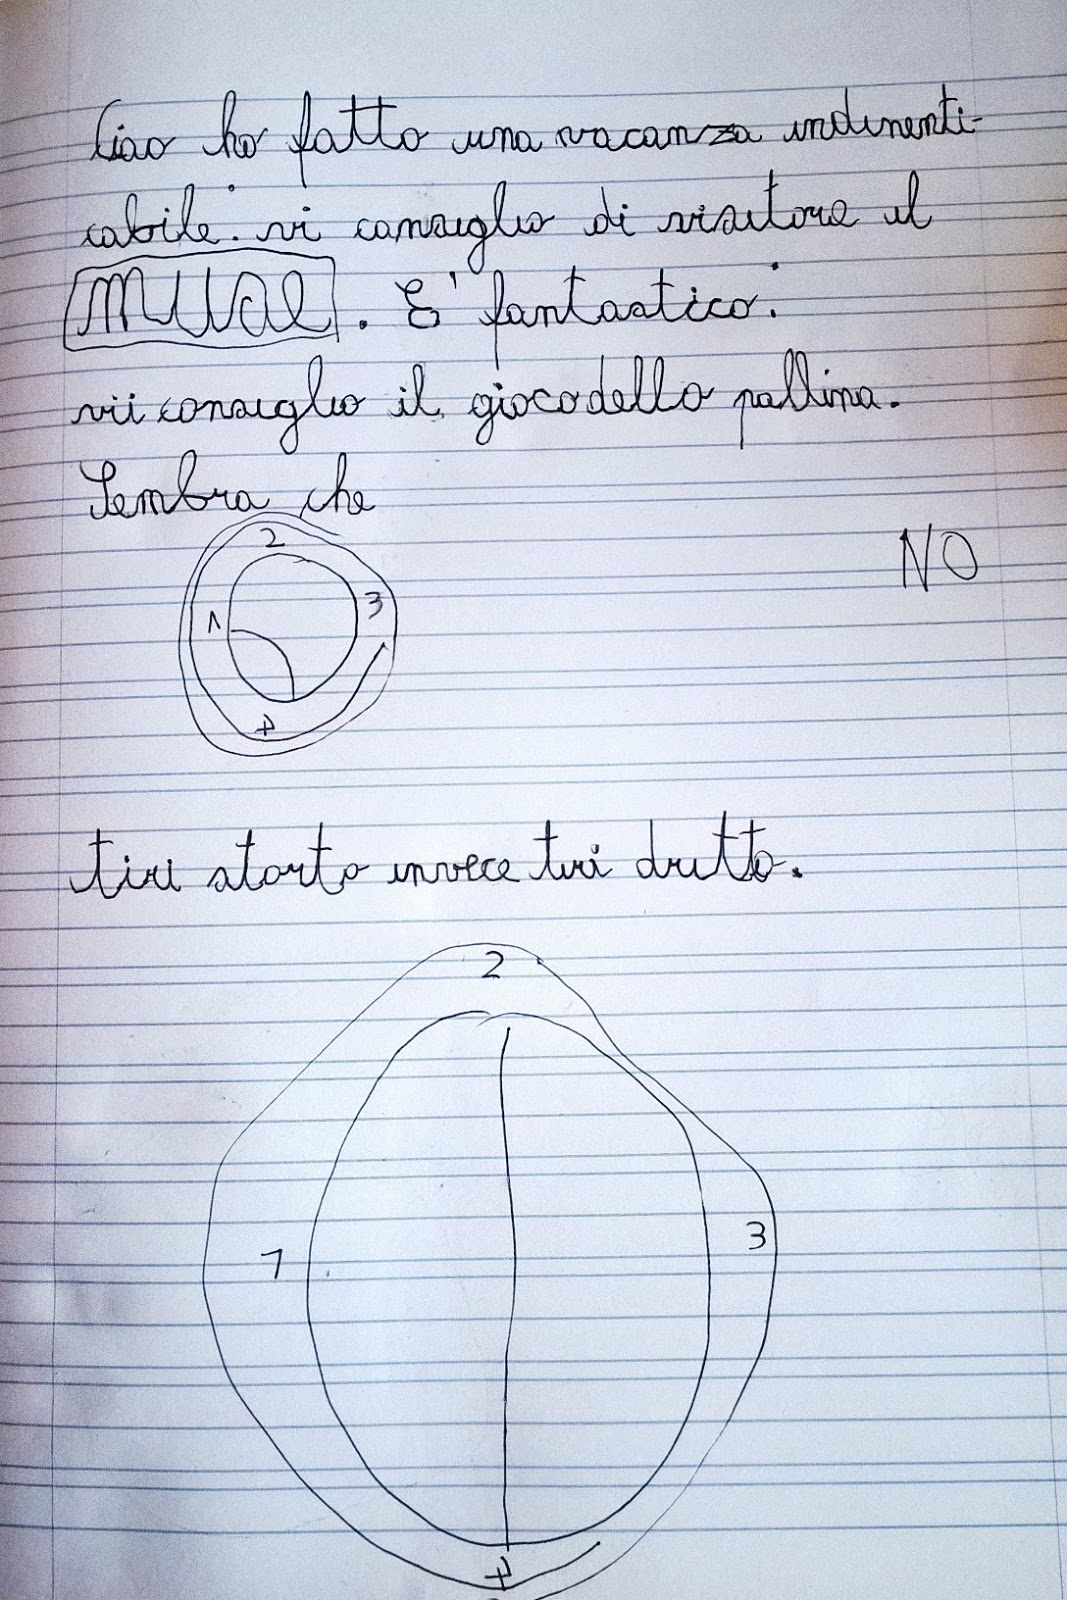 Ciao ho fatto una vacanza indimenti-
cabile. vi consiglio di visitare il
MUSE. E' fantastico.
vii consiglio il gioco della pallina.
Sembra che
2
NO
3
1
4
tiri storto invece tiri dritto.
2
3
1
4